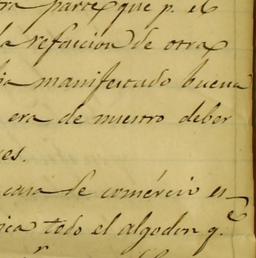 ra parte que p. el
la refericion de otra
ha manifestado buena
era de nuestro deber
es.
casa de comércio en
ica todo el algodon q.e